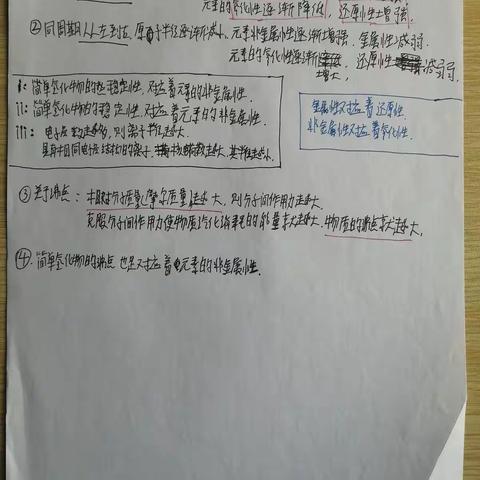 元素的氧化性逐渐降低，还原性增强.
② 同周期从左到右，原子半径逐渐减小，元素非金属性逐渐增强，金属性减弱.
元素的氧化性逐渐增大，还原性减弱.
i: 简单氢化物的热稳定性，对应着元素的非金属性.
ii: 简单氢化物的稳定性，对应着元素的非金属性.
iii: 电子层数越多，则离子半径越大.
具有相同电子层结构的离子，核电荷数越大，其半径越小.
金属性对应着还原性.
非金属性对应着氧化性.
③ 关于沸点：相对分子质量(摩尔质量)越大，则分子间作用力越大.
克服分子间作用力使物质汽化消耗的能量就大，物质的沸点就越大.
④ 简单氢化物的沸点也是对应着元素的非金属性.